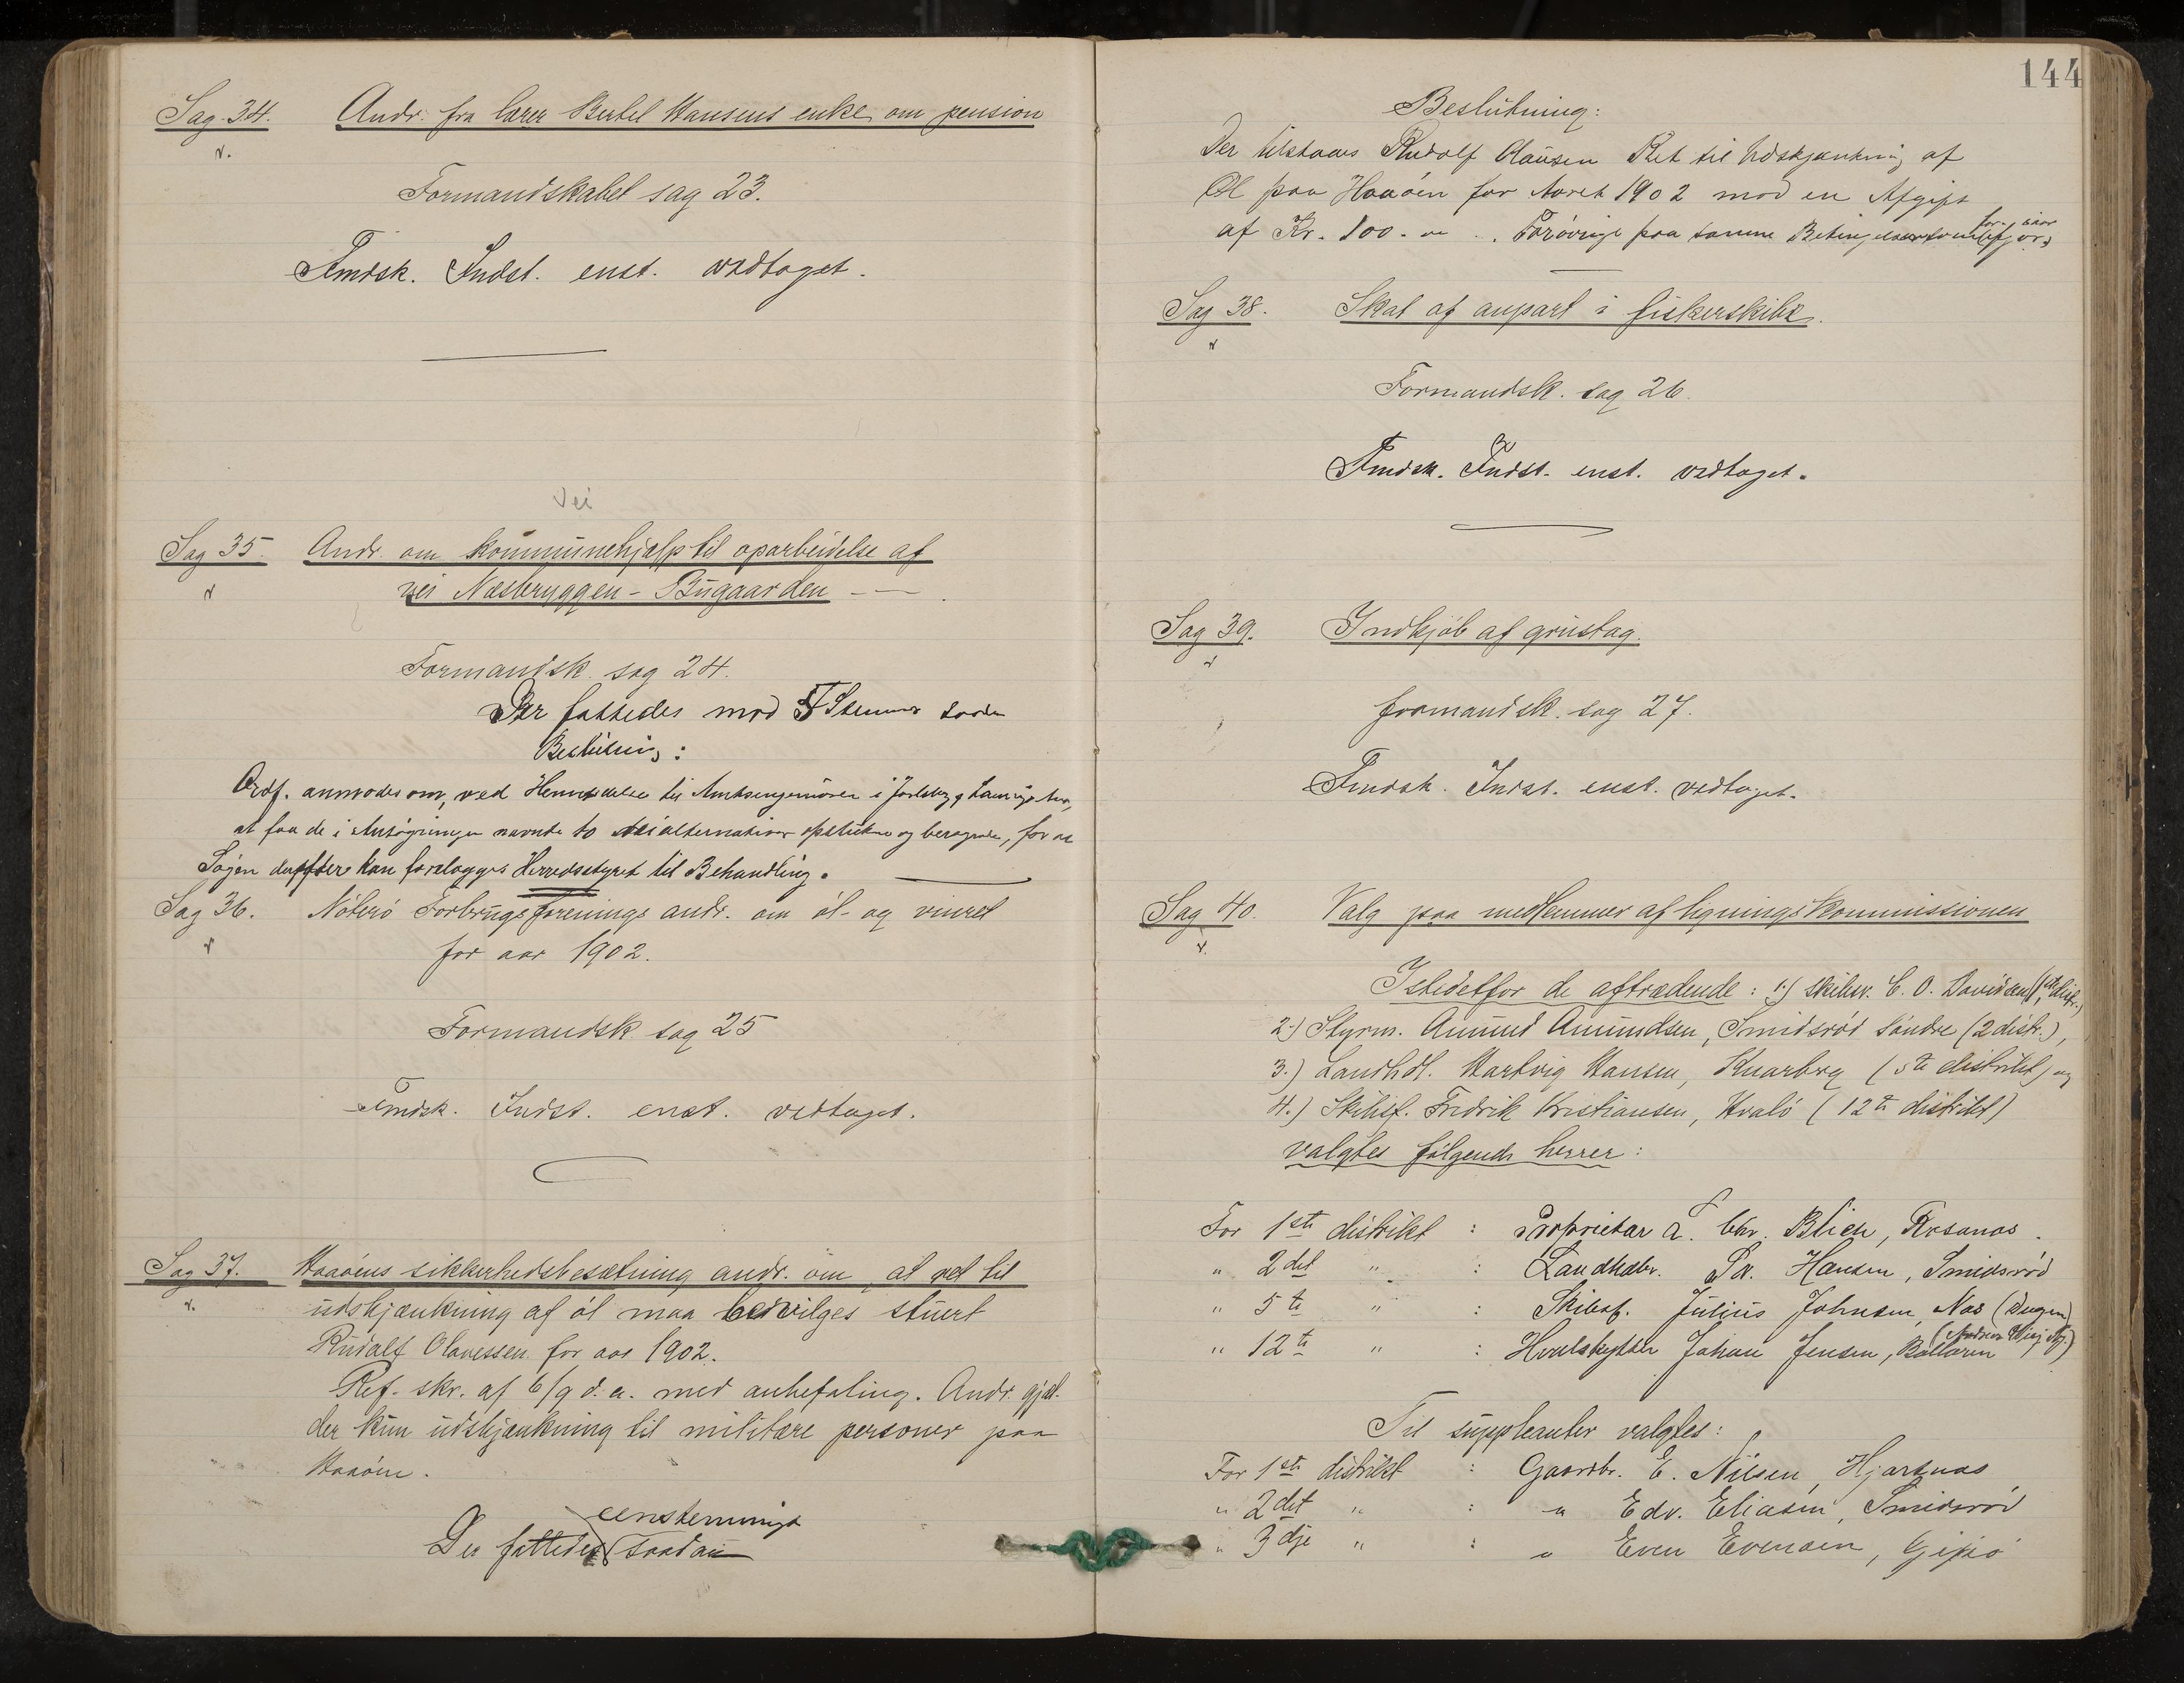 Sag 34. Andr. fra lærer Bertel Hansens enke om pension
Formandskabet sag 23.
Fmdsk. Indst. enst. vedtaget.
Vei
Sag 35. Andr. om kommunehjælp til oparbeidelse af
vei Næsbryggen - Bugaarden
Formandsk. sag 24.
Der fattedes mod Stemmer saadan
Beslutning:
Ordf. anmodes om, ved Henvendelse til Amtsingeniøren i Jarlsberg og Laurvigs Amt,
at faa de i Ansøgningen nævnte to Veialternativer opstukne og beregnede, for at
Sagen derefter kan forelægges Herredsstyret til Behandling.
Sag 36. Nøterø Forbrugsforenings andr. om øl- og vinret
for aar 1902.
Formandsk. sag 25
Fmdsk. Indst. enst. vedtaget.
Sag 37. Haaøens sikkerhedsbesætning andr. om, at ret til
udskjænkning af øl maa bevilges stuert
Rudolf Olavessen for aar 1902.
Ref. skr. af 6/9 d.a. med anbefaling. Andr. gjæl-
der kun udskjænkning til militære personer paa
Haaøen.
eenstemmigt
Der fattedes saadan
144
Beslutning:
Der tilstaaes Rudolf Olausen Ret til Udskjænkning af
Øl paa Haaøen for Aaret 1902 mod en Afgift
af Kr. 100. Forøvrigt paa samme Betingelser som
Sag 38. Skat af anpart i fiskerskibe.
Formandsk. sag 26.
Fmdsk. Indst. enst. vedtaget.
Sag 39. Indkjøb af grustag.
formandsk. sag 27.
Fmdsk. Indst. enst. vedtaget.
Sag 40. Valg paa medlemmer af ligningskommissionen
Istedetfor de aftrædende: 1.) skibsr. C. O. Davidsen (1ste distr.)
2.) Styrm. Amund Amundsen, Smidsrød søndre (2 distr.),
3.) Landhdl. Hartvig Hansen, Knarberg (5te distrikt) og
4.) Skibsf. Fredrik Kristiansen, Hvalø (12te distrikt)
valgtes følgende herrer:
For 1ste distrikt : Proprietær Chr. Blich, Rosanes.
" 2det " : Landhdlr. Hansen, Smidsrød
" 5te " : Skibsf. Julius Johnsen, Næs
" 12te " : Hvalskytter Johan Jensen, Bollæren
Til suppleanter valgtes:
For 1ste distrikt : Gaardbr. E. Nilsen, Hjertnæs
" 2det " : " Edv. Eliasen, Smidsrød
" 3dje " : " Even Evensen, Gipø